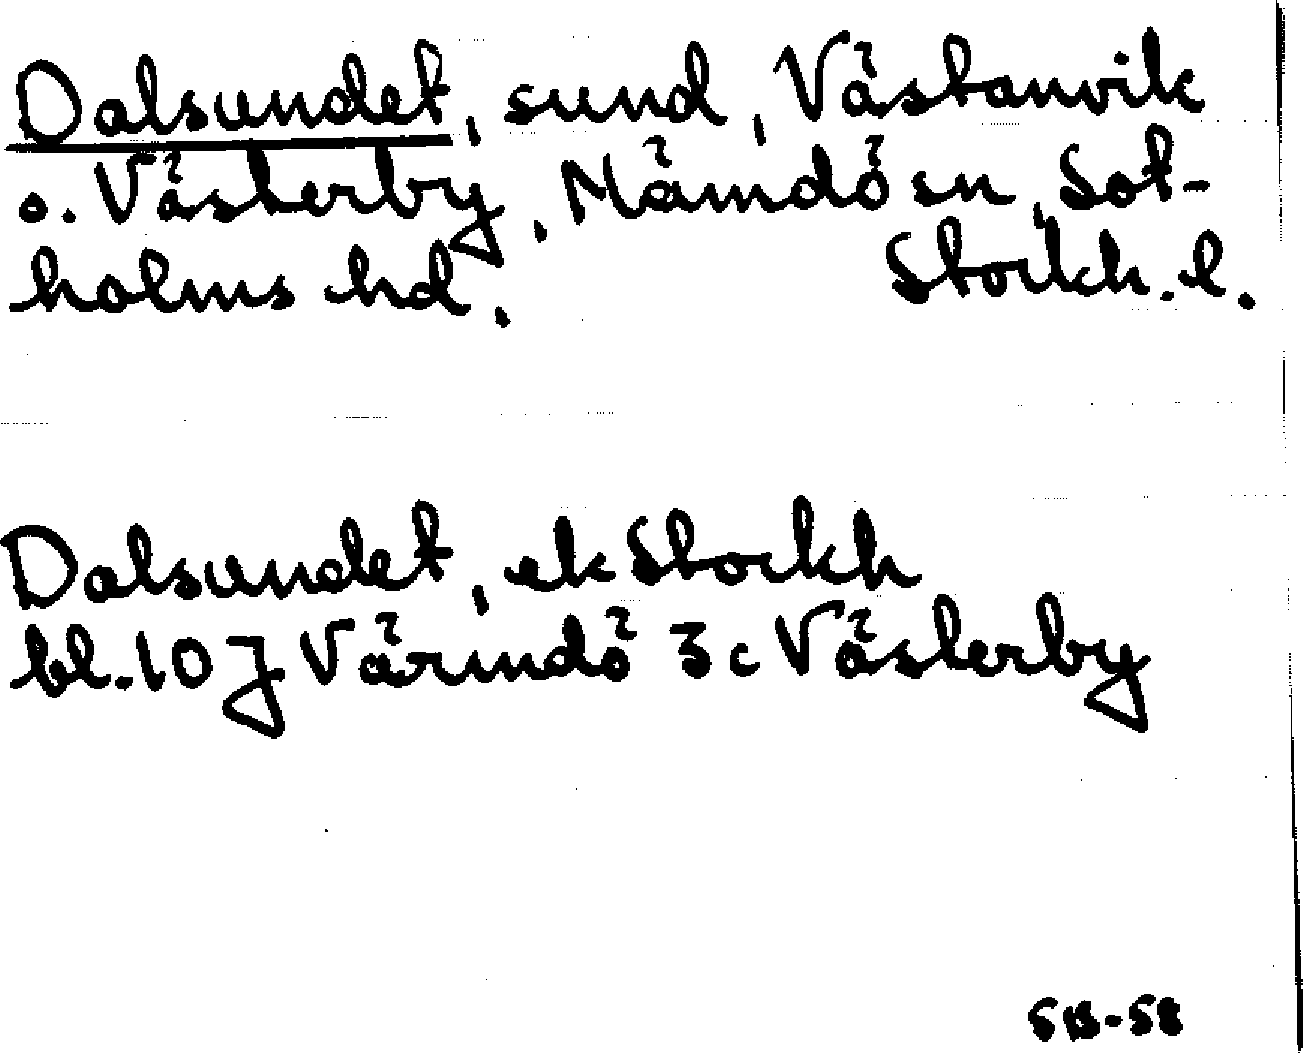 Dalsundet, sund, Västanvik
o. Västerby, Nämdö sn, Sot-
holms hd. Stockh. l.
Dalsundet, ek Stockh
bl. 10 J Värmdö 3c Västerby
SB-58